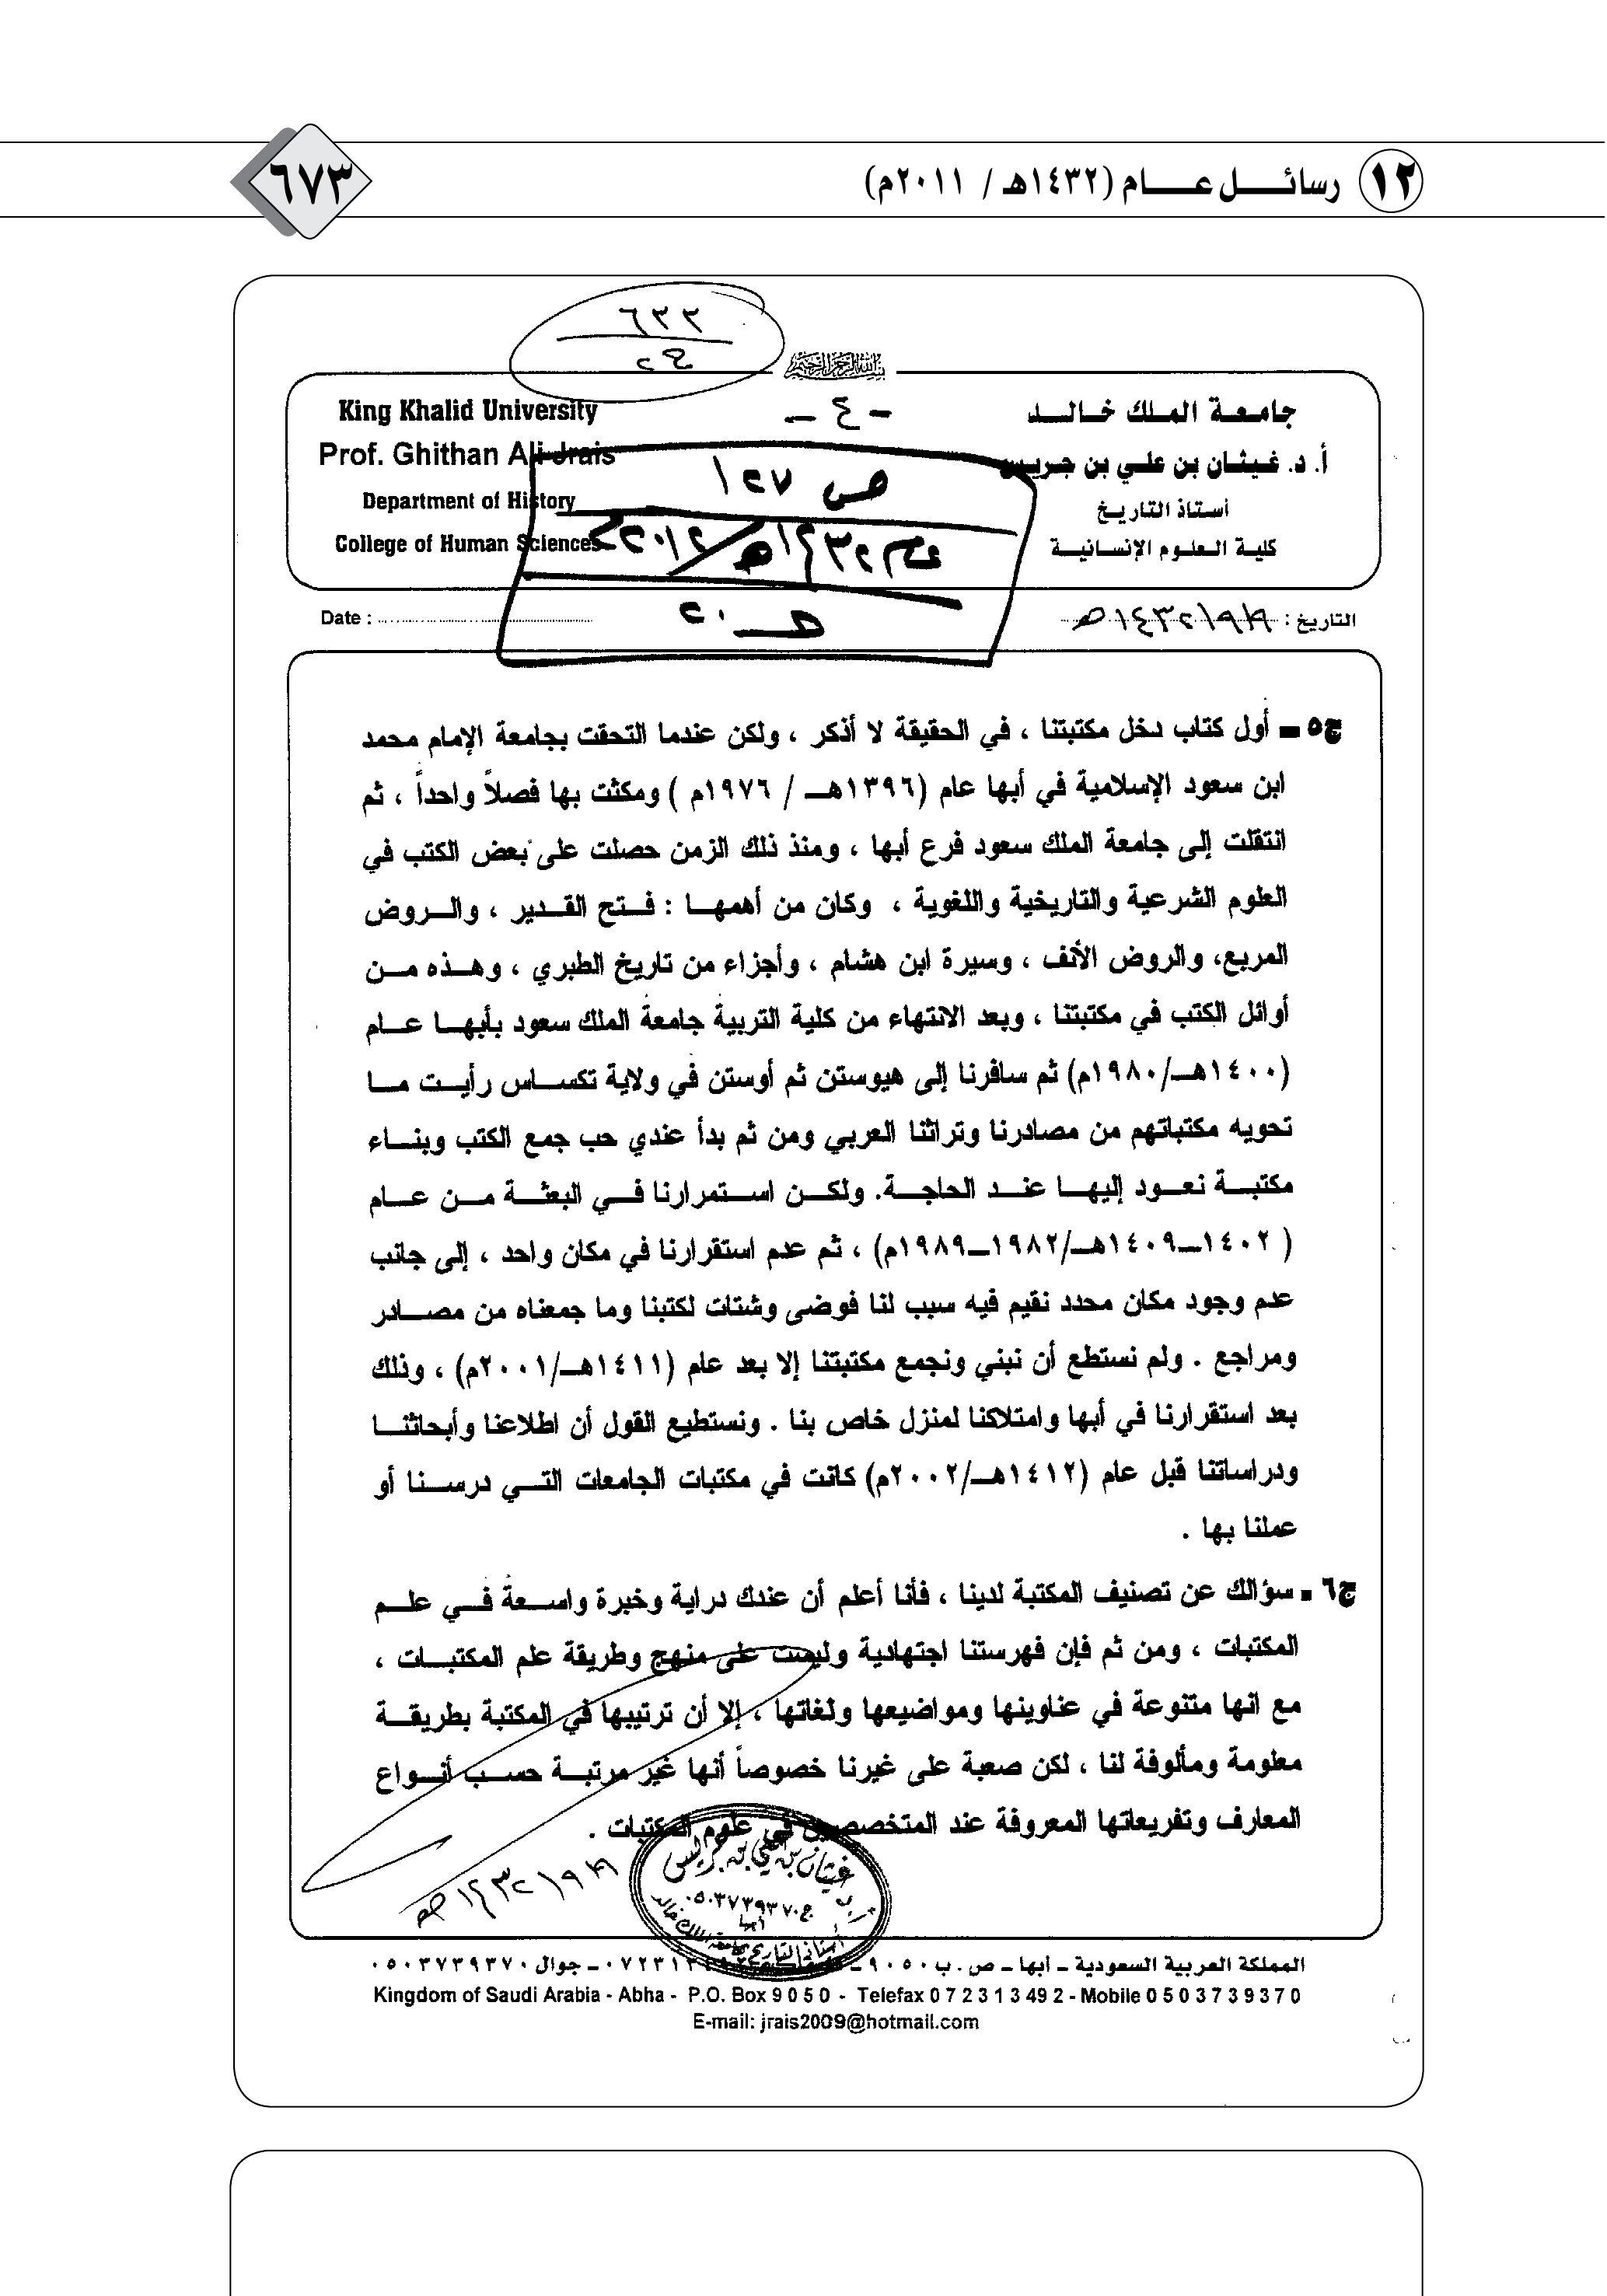 ١٢ رسائل عام (١٤٣٢هـ / ٢٠١١م)
٦٧٣
٦٣٣
٢٤
بسم الله الرحمن الرحيم
King Khalid University
Prof. Ghithan Ali Jrais
Department of History
College of Human Sciences
- ٤ -
جامعة الملك خالد
أ. د. غيثان بن علي بن جريس
أستاذ التاريخ
كلية العلوم الإنسانية
ص ١٢٧
Date :
التاريخ : ١٤٣٢/٩/١٩هـ
ج٥ ـ أول كتاب دخل مكتبتنا ، في الحقيقة لا أذكر ، ولكن عندما التحقت بجامعة الإمام محمد
ابن سعود الإسلامية في أبها عام (١٣٩٦هـ / ١٩٧٦م ) ومكثت بها فصلاً واحداً ، ثم
انتقلت إلى جامعة الملك سعود فرع أبها ، ومنذ ذلك الزمن حصلت على بعض الكتب في
العلوم الشرعية والتاريخية واللغوية ، وكان من أهمها : فتح القدير ، والروض
المربع، والروض الأنف ، وسيرة ابن هشام ، وأجزاء من تاريخ الطبري ، وهذه من
أوائل الكتب في مكتبتنا ، وبعد الانتهاء من كلية التربية جامعة الملك سعود بأبها عام
(١٤٠٠هـ/١٩٨٠م) ثم سافرنا إلى هيوستن ثم أوستن في ولاية تكساس رأيت ما
تحويه مكتباتهم من مصادرنا وتراثنا العربي ومن ثم بدأ عندي حب جمع الكتب وبناء
مكتبة نعود إليها عند الحاجة. ولكن استمرارنا في البعثة من عام
( ١٤٠٢ـ١٤٠٩هـ/١٩٨٢ـ١٩٨٩م) ، ثم عدم استقرارنا في مكان واحد ، إلى جانب
عدم وجود مكان محدد نقيم فيه سبب لنا فوضى وشتات لكتبنا وما جمعناه من مصادر
ومراجع . ولم نستطع أن نبني ونجمع مكتبتنا إلا بعد عام (١٤١١هـ/٢٠٠١م) ، وذلك
بعد استقرارنا في أبها وامتلاكنا لمنزل خاص بنا . ونستطيع القول أن اطلاعنا وأبحاثنا
ودراساتنا قبل عام (١٤١٢هـ/٢٠٠٢م) كانت في مكتبات الجامعات التي درسنا أو
عملنا بها .
ج٦ ـ سؤالك عن تصنيف المكتبة لدينا ، فأنا أعلم أن عندك دراية وخبرة واسعة في علم
المكتبات ، ومن ثم فإن فهرستنا اجتهادية وليست على منهج وطريقة علم المكتبات ،
مع انها متنوعة في عناوينها ومواضيعها ولغاتها ، إلا أن ترتيبها في المكتبة بطريقة
معلومة ومألوفة لنا ، لكن صعبة على غيرنا خصوصاً أنها غير مرتبة حسب أنواع
المعارف وتفريعاتها المعروفة عند المتخصصين في علوم المكتبات .
١٤٣٢/٩/١٩هـ
غيثان بن علي بن جريس
ج ٠٥٠٣٧٣٩٣٧٠
أبها
أستاذ التاريخ بجامعة الملك خالد
المملكة العربية السعودية ـ أبها ـ ص . ب ٩٠٥٠ ـ ٠٧٢٣١٣٤٩٢ ـ جوال ٠٥٠٣٧٣٩٣٧٠
Kingdom of Saudi Arabia - Abha - P.O. Box 9 0 5 0 - Telefax 0 7 2 3 1 3 49 2 - Mobile 0 5 0 3 7 3 9 3 7 0
E-mail: jrais2009@hotmail.com